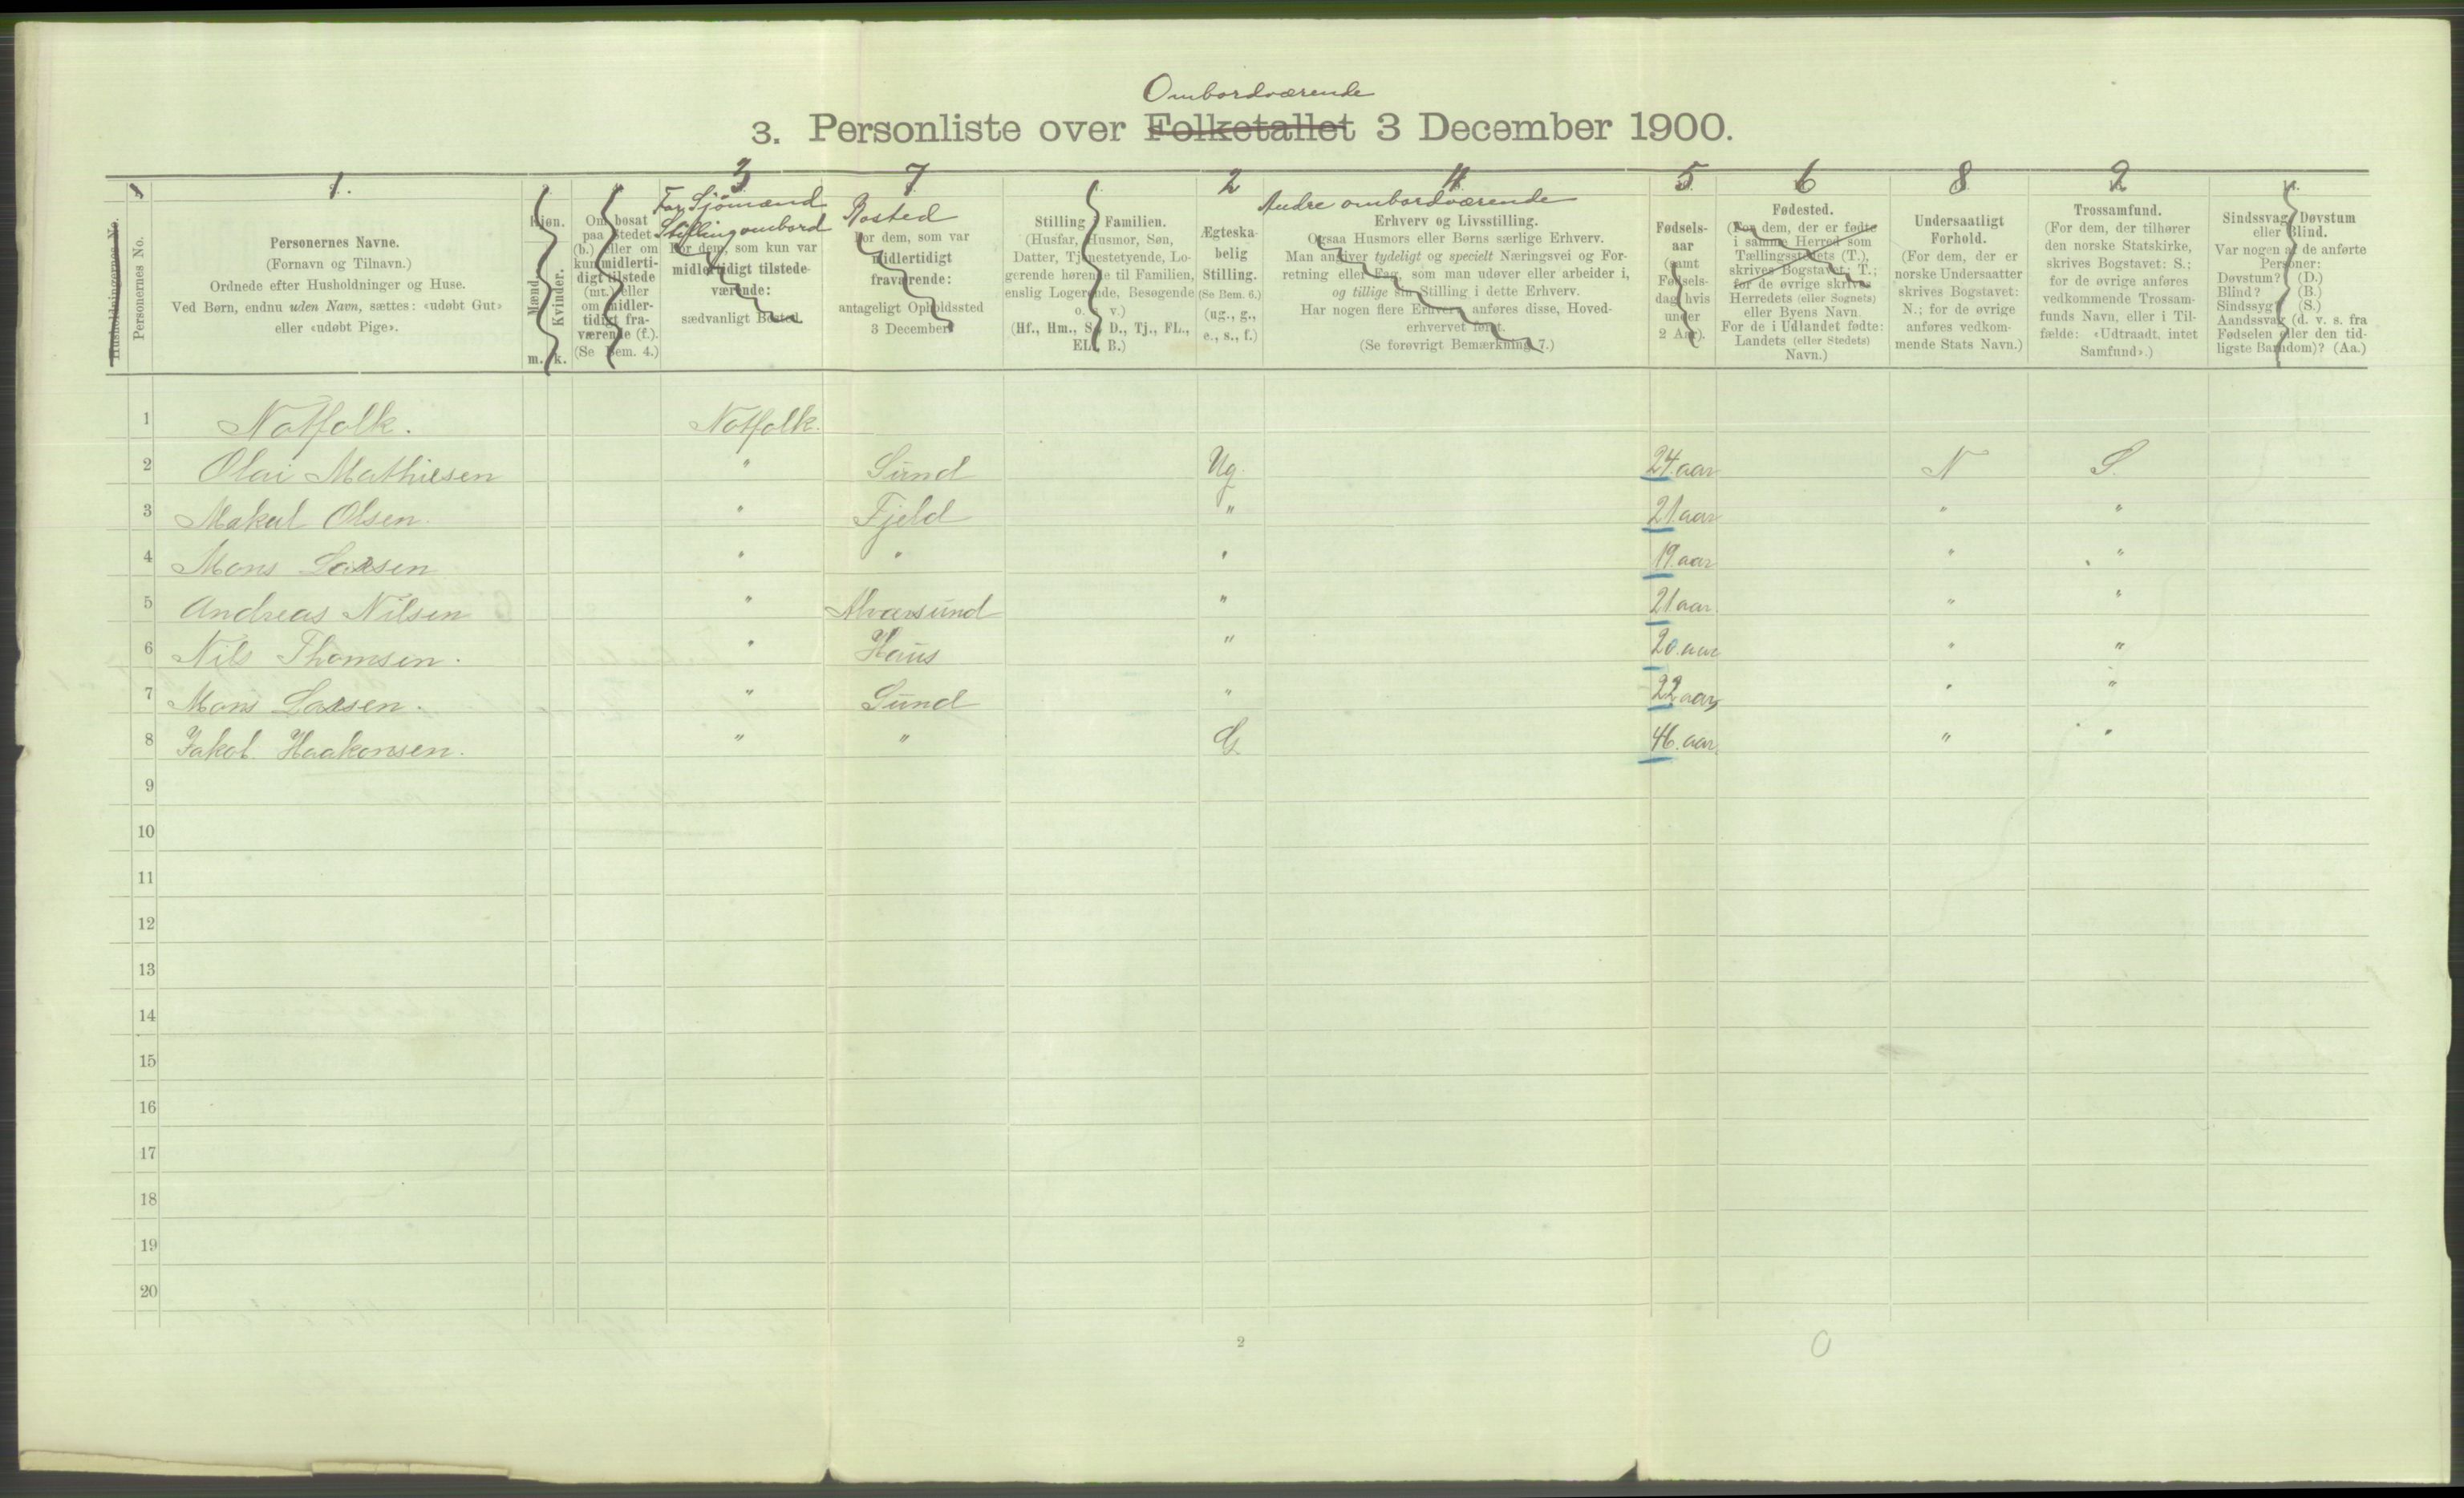 Ombordværende
3. Personliste over Folketallet 3 December 1900.
1. 3 7 2 4. 5 6 8 9
Husholdningernes No.
Personernes No.
Personernes Navne.
(Fornavn og Tilnavn.)
Ordnede efter Husholdninger og Huse.
Ved Børn, endnu uden Navn, sættes: «udøbt Gut»
eller «udøbt Pige».
Kjøn.
Mænd.
Kvinder.
m. k.
Om bosat
paa Stedet
(b.) eller om
kun midlerti-
digt tilstede
(mt.) eller
om midler-
tidigt fra-
værende (f.).
(Se Bem. 4.)
For Sjömænd
Stilling ombord
For dem, som kun var
midlertidigt tilstede-
værende:
sædvanligt Bosted.
Bosted
For dem, som var
midlertidigt
fraværende:
antageligt Opholdssted
3 December.
Stilling i Familien.
(Husfar, Husmor, Søn,
Datter, Tjenestetyende, Lo-
gerende hørende til Familien,
enslig Logerende, Besøgende
o. s. v.)
(Hf., Hm., S., D., Tj., FL.,
EL., B.)
Ægteska-
belig
Stilling.
(Se Bem. 6.)
(ug., g.,
e., s., f.)
Andre ombordværende
Erhverv og Livsstilling.
Ogsaa Husmors eller Børns særlige Erhverv.
Man angiver tydeligt og specielt Næringsvei og For-
retning eller Fag, som man udøver eller arbeider i,
og tillige sin Stilling i dette Erhverv.
Har nogen flere Erhverv, anføres disse, Hoved-
erhvervet først.
(Se forøvrigt Bemærkning 7.)
Fødsels-
aar
(samt
Fødsels-
dag hvis
under
2 Aar).
Fødested.
(For dem, der er fødte
i samme Herred som
Tællingsstedets (T.),
skrives Bogstavet: T.;
for de øvrige skrives
Herredets (eller Sognets)
eller Byens Navn.
For de i Udlandet fødte:
Landets (eller Stedets)
Navn.)
Undersaatligt
Forhold.
(For dem, der er
norske Undersaatter
skrives Bogstavet:
N.; for de øvrige
anføres vedkom-
mende Stats Navn.)
Trossamfund.
(For dem, der tilhører
den norske Statskirke,
skrives Bogstavet: S.;
for de øvrige anføres
vedkommende Trossam-
funds Navn, eller i Til-
fælde: «Udtraadt, intet
Samfund».)
Sindssvag, Døvstum
eller Blind.
Var nogen af de anførte
Personer:
Døvstum? (D.)
Blind? (B.)
Sindssyg? (S.)
Aandssvag (d. v. s. fra
Fødselen eller den tid-
ligste Barndom)? (Aa.)
1 Notfolk. Notfolk.
2 Olai Mathiesen " Sund Ug. 24 aar N S.
3 Makal Olsen. " Fjeld " 21 aar " "
4 Mons Larsen " " " 19 aar " "
5 Andreas Nilsen " Alvarsund " 21 aar " "
6 Nils Thomsen. " Haus " 20. aar " "
7 Mons Larsen. " Sund " 22 aar " "
8 Jakob Haakonsen. " " G 46. aar. " "
9
10
11
12
13
14
15
16
17
18
19
20
2
0